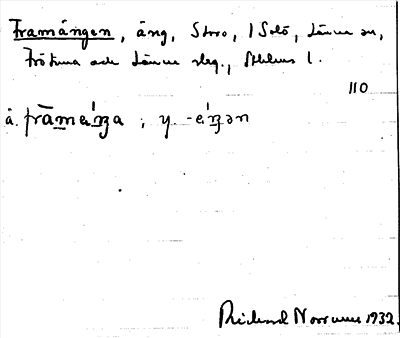 Framängen, äng, Storö, 1 Solö, Länna sn,
Frötuna och Länna slg., Sthlms l.
110
å. frāmeŋa ; y. -eŋən
Richard Norrman 1932.